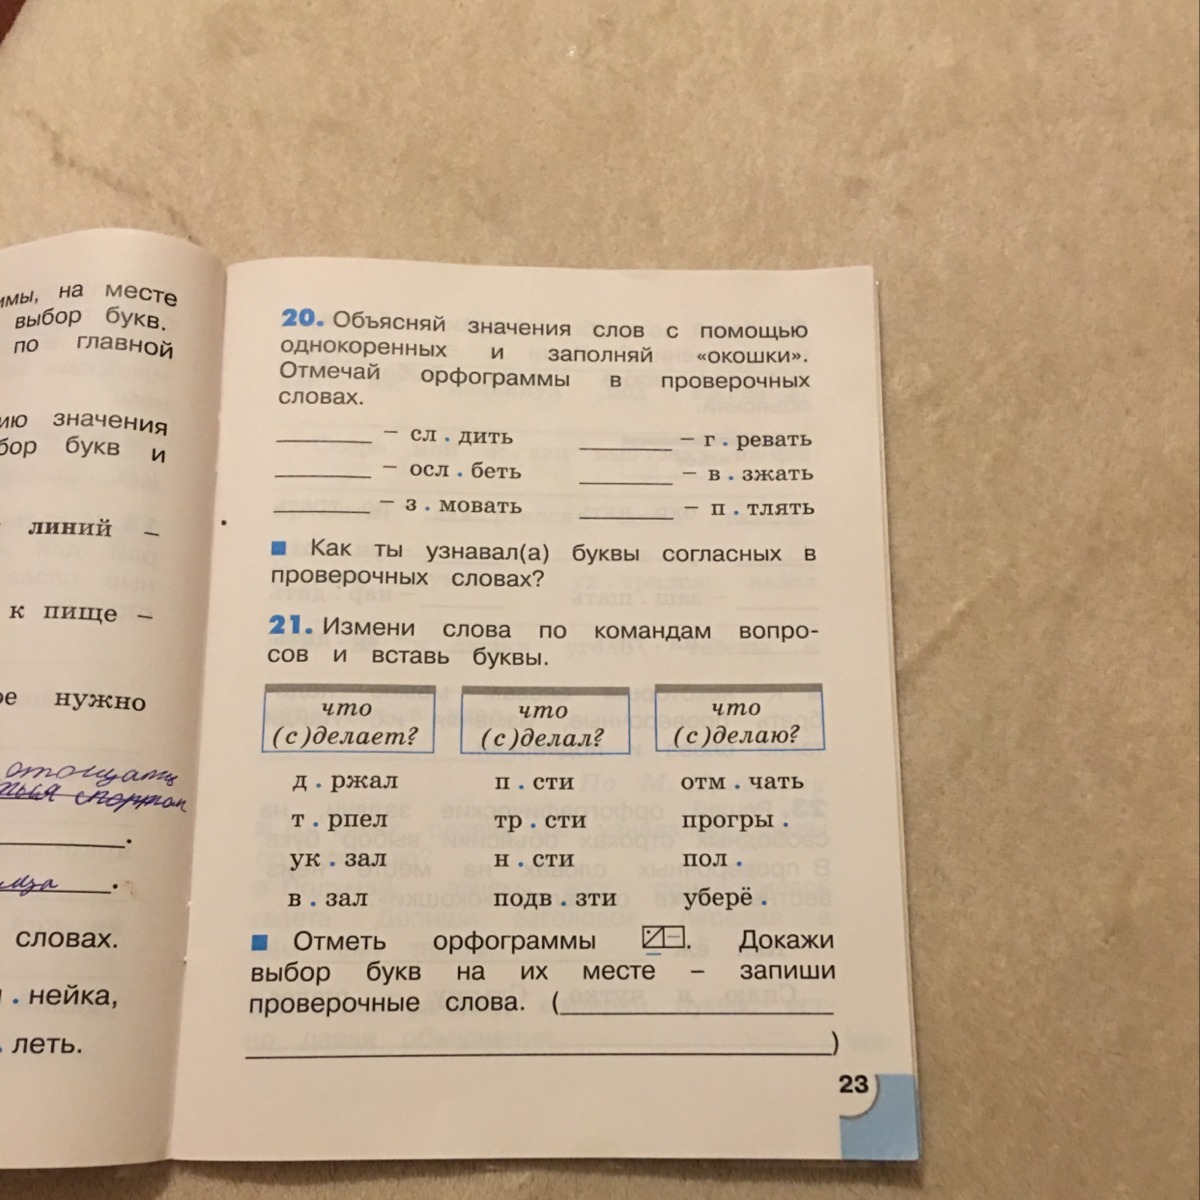 имы, на месте
выбор букв.
по главной
ию значения
бор букв и
линий –
к пище –
ое нужно
отощать
.
.
словах.
. нейка,
. леть.
20. Объясняй значения слов с помощью
однокоренных и заполняй «окошки».
Отмечай орфограммы в проверочных
словах.
________ – сл . дить ________ – г . ревать
________ – осл . беть ________ – в . зжать
________ – з . мовать ________ – п . тлять
Как ты узнавал(а) буквы согласных в
проверочных словах?
21. Измени слова по командам вопро-
сов и вставь буквы.
что что что
(с)делает? (с)делал? (с)делаю?
д . ржал п . сти отм . чать
т . рпел тр . сти прогры .
ук . зал н . сти пол .
в . зал подв . зти уберё .
Отметь орфограммы . Докажи
выбор букв на их месте – запиши
проверочные слова. (________
________)
23